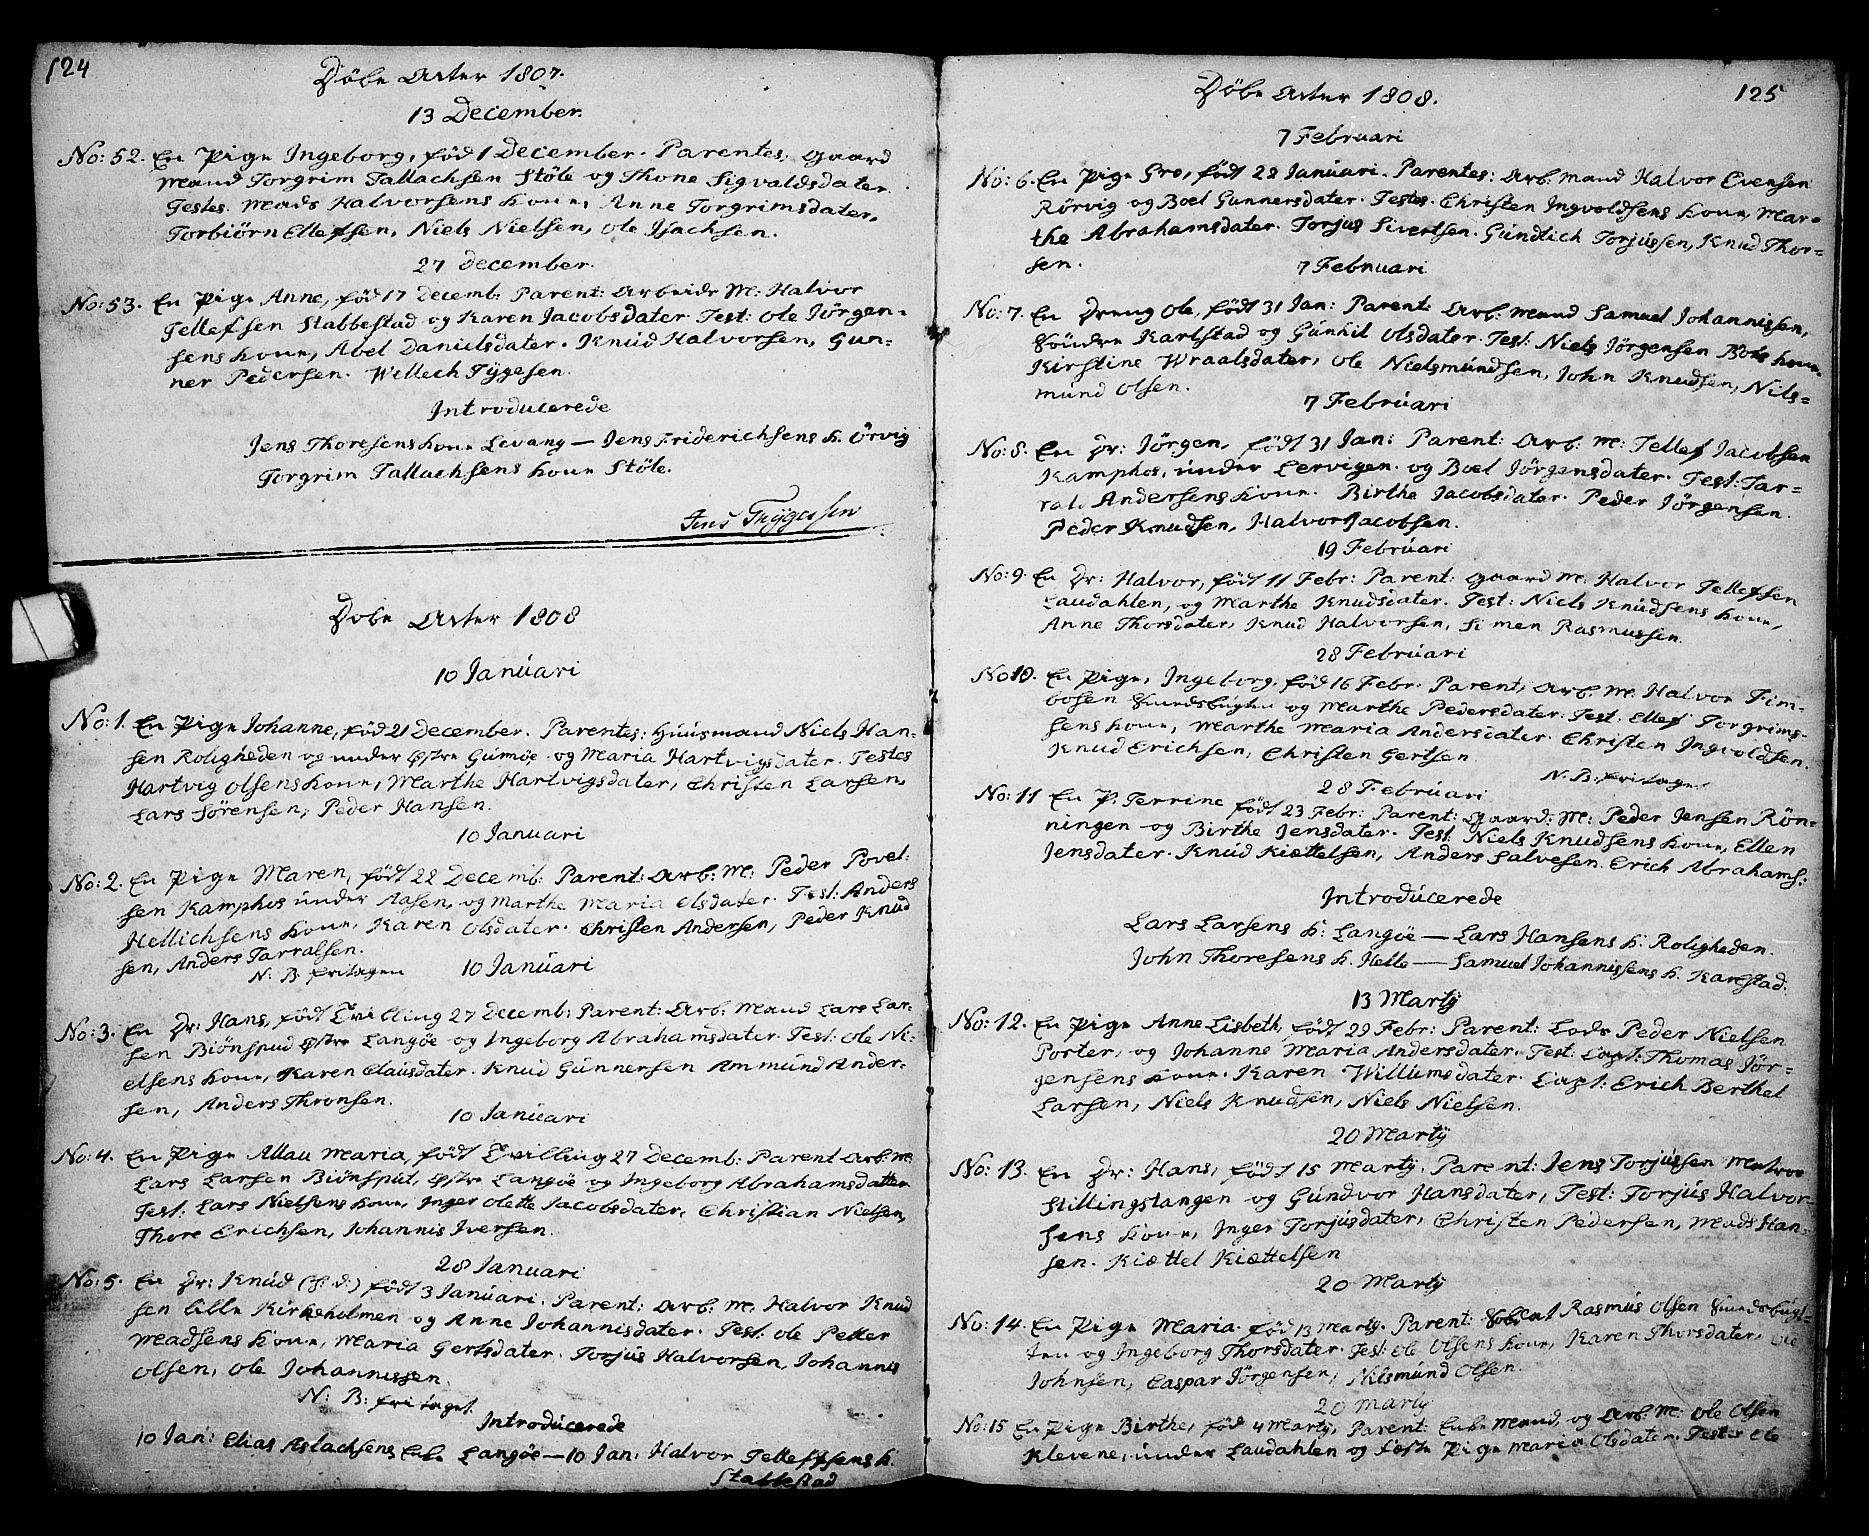 124
Döbe Acter 1807.
13 December.
No: 52. En Pige Ingeborg, föd 1 December. Parentes, Gaard
Mand Torgrim Tallachsen Stöle og Thone Sigvaldsdater.
Testes. Mads Halvorsens Kone, Anne Torgrimsdater,
Torbiörn Ellefsen, Niels Nielsen, Ole Isachsen.
27 December.
No: 53. En Pige Anne, föd 17 Decemb: Parent: Arbeids M: Halvor
Tellefsen Stabbestad og Karen Jacobsdater. Test: Ole Jörgen-
sens Kone, Abel Danielsdater. Knúd Halvorsen, Gun-
ner Pedersen. Wellech Tÿgesen.
Introducerede
Jens Thoresens Kone Levang — Jens Friderichsens K. Örvig
Torgrim Tallachsens Kone Stöle.
Jens Trÿgessen
Döbe Acter 1808
10 Janúari
No: 1. En Pige Johanne, föd 21 December. Parentes: Húúsmand Niels Han-
sen Roligheden og under Östre Gúmöe og Maria Hartvigsdater. Testes
Hartvig Olsens Kone, Marthe Hartvigsdater, Christen Larsen,
Lars Sörensen, Peder Hansen.
10 Januari
No: 2. En Pige Maren, födt 22 Decemb: Parent: Arb: M: Peder Povel-
sen Kamphos únder Aasen, og Marthe Maria Olsdater. Test: Anders
Hellichsens Kone, Karen Olsdater. Christen Andersen, Peder Knúd
sen, Anders Tarralsen.
N: B. fritagen 10 Janúari
No: 3. En Dr: Hans, födt Tvilling 27 Decemb: Parent: Arb: Mand Lars Lar-
sen Biönspud Östre Langöe og Ingeborg Abrahamsdater. Test: Ole Ni-
elsens Kone, Karen Clausdater. Knúd Gúnnersen Ammúnd Ander-
sen, Anders Thronsen.
10 Januari
No: 4. En Pige Allau Maria, födt Tvilling 27 Decemb: Parent Arb: M:
Lars Larsen Biönspút, Östre Langöe og Ingeborg Abrahamsdatter
Test. Lars Nielsens Kone, Inger Olette Jacobsdater, Christian Nielsen,
Thore Erichsen, Johannis Iversen.
28 Januari
No: 5. En Dr: Knúd (h: d:) födt 3 Janúari. Parent: Arb: M: Halvor Knud
sen lille Kirkeholmen og Anne Johannisdater. Test: Ole Petter
Madsens Kone, Maria Gertsdater. Torjús Halvorsen, Johannis
Olsen, Ole Johannissen.
N: B: fritaget
Introducerede
10 Jan: Elias Aslachsens Enke Langöe — 10 Jan: Halvor Tellefssens K.
Stabbestad
Döbe Acter 1808.
125
7 Februari
No: 6. En Pige Gro, födt 28 Janúari. Parentes: Arb: Mand Halvor Evensen
Rörvig og Boel Gunnersdater. Testes. Christen Ingvoldsens Kone, Mar-
the Abrahamsdater. Torjus Sivertsen. Gúndlich Torjússen, Knud Thor-
sen.
7 Februari
No: 7. En Dreng Ole, födt 31 Jan: Parent: Arb: Mand Samuel Johannissen,
Söndre Karlstad og Gúnhil Olsdater. Test: Niels Jörgensen Boes Kone
Kirstine Wraalsdater, Ole Nielsmúndsen, John Knudsen, Nils-
mund Olsen.
7 Februari
No: 8. En Dr: Jörgen, födt 31 Jan: Parent: Arb: M: Tellef Jacobsen
Kamphos, únder Lervigen. og Boel Jörgensdater. Test: Tar-
rald Andersens Kone. Birthe Jacobsdater. Peder Jörgensen.
Peder Knudsen, Halvor Jacobsen.
19 Febrúari
No: 9. En Dr: Halvor, födt 11 Febr: Parent: Gaard M: Halvor Tellefsen
Laudahlen, og Marthe Knudsdater. Test: Niels Knúdsens Kone,
Anne Thorsdater, Knud Halvorsen, Simen Rasmussen.
28 Februari
No 10. En Pige, Ingeborg, föd 16 Febr. Parent, Arb. M: Halvor Tim-
bosen Smedsbugten og Marthe Pedersdater. Test. Ellef Torgrims-
sens Kone, Marthe Maria Andersdater. Christen Ingvoldsen.
Knud Erichsen, Christen Gertsen.
28 Februari N: B: fritaget
No: 11 En P. Terrine födt 23 Febr: Parent: Gaard: M: Peder Jensen Rön-
ningen og Birthe Jensdater. Test: Niels Knudsens Kone, Ellen
Jensdater. Knúd Kiættelsen, Anders Salvesen. Erich Abrahams:
Introdúcerede
Lars Larsens K: Langöe — Lars Hansens K: Roligheden.
John Thoresens K. Helle — Samuel Johannissens K. Karlstad.
13 Martÿ
No: 12. En Pige Anne Lisbeth, födt 29 Febr: Parent: Lods Peder Nielsen
Porter, og Johanne Maria Andersdater. Test: Capt: Thomas Jör-
gensens Kone. Karen Willumsdater. Capt: Erich Berthel
Larsen, Niels Knudsen, Niels Nielsen.
20 Martÿ
No: 13. En Dr: Hans, födt 15 Martÿ. Parent: Jens Torjússen Matros
Stillingstangen og Gúndvor Hansdater, Test: Torjús Halvor-
sens Kone, Inger Torjúsdater, Christen Pedersen, Mads Han-
sen. Kiættel Kiættelsen
20 Martÿ
No: 14. En Pige Maria. föd 13 Martÿ. Parent: Soldat Rasmús Olsen Smedsbúgt-
ten og Ingeborg Thorsdater. Test: Ole Olsens Kone, Karen Thorsdater, Ole
Johnsen, Caspar Jörgensen, Nilsmúnd Olsen.
20 Martÿ
No: 15 En Pige Birthe, föd 4 Martÿ, Parent: Enke Mand, og Arb: M: Ole Olsen
Klevene, únder Laudahlen og Löse Pige Maria Olsdater. Testes Ole